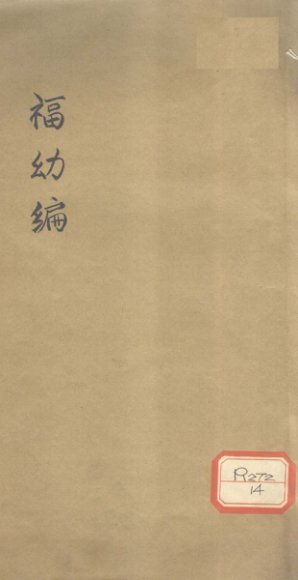 福幼编
R272
14